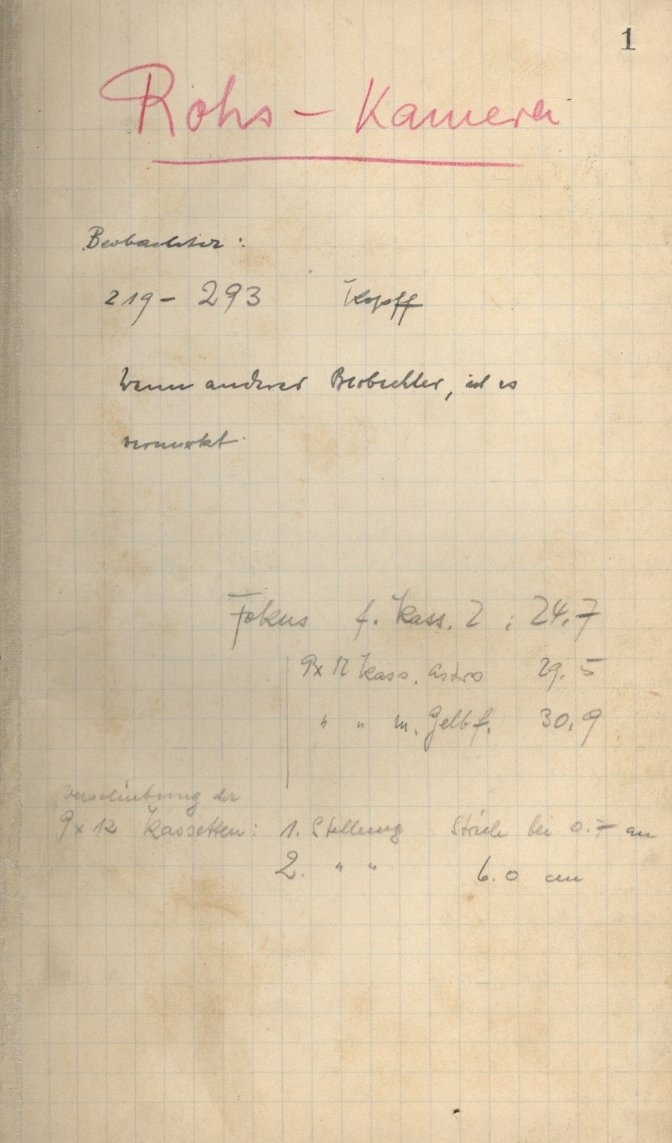 1
Rohs - Kamera
Beobachter:
219 - 293 Kopff
Wenn anderer Beobachter, ist es
vermerkt.
Fokus f. Kass. 2 : 24,7
9x12 Kass. astro 29.5
" " m. Gelbf. 30,9
Verschiebung der
9x12 Kassetten: 1. Stellung bei 0.7 cm
2. " " 6.0 cm